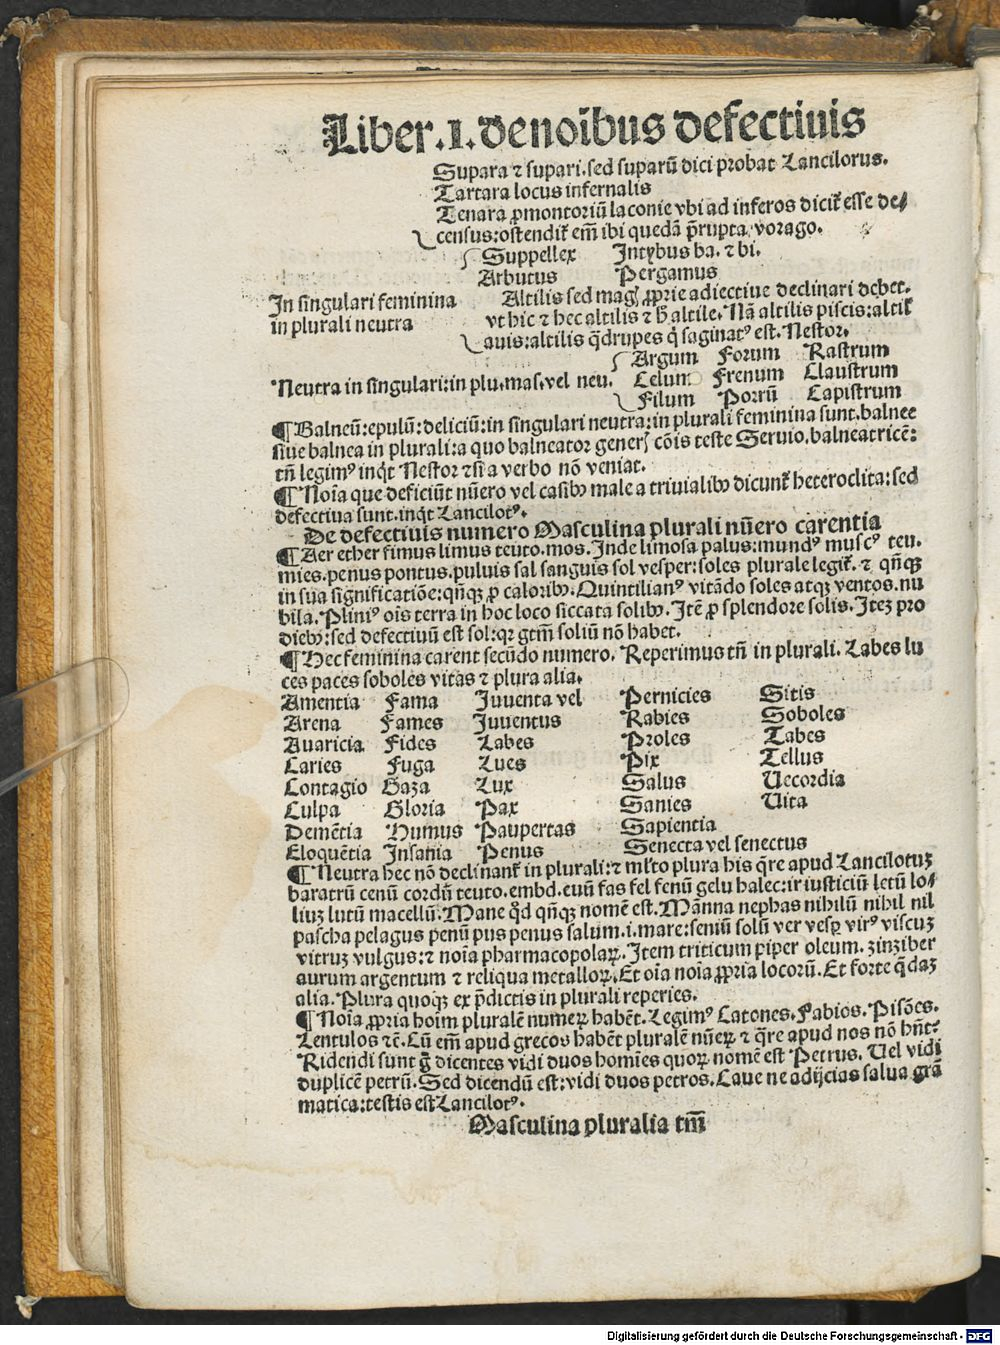 Liber .I. de noībus defectiuis
Supara ⁊ supari. sed suparū dici probat Lancilotus.
Tartara locus infernalis
Tenara ꝓmontoriū laconie vbi ad inferos dicit᷑ esse de⸗
census: ostendit᷑ em̄ ibi quedā p̄rupta vorago.
Suppellex Intybus ba. ⁊ bi.
Arbutus Pergamus
In singulari feminina
in plurali neutra
Altilis sed magꝭ ꝓprie adiectiue declinari debet.
vt hic ⁊ hec altilis ⁊ h̄ altile. Nā altilis piscis: altil᷑
auis: altilis q̄drupes q̇ saginatꝰ est. Nestor.
Argum Forum Rastrum
Neutra in singulari: in plu. mas. vel neu. Celum Frenum Claustrum
Filum Porrū Capistrum
¶ Balneū: epulū: deliciū: in singulari neutra: in plurali feminina sunt. balnee
siue balnea in plurali: a quo balneator generꝭ cōis teste Seruio. balneatricē:
tn̄ legimꝰ inq̇t Nestor ⁊ si a verbo nō veniat.
¶ Noīa que deficiūt nūero vel casibꝫ male a triuialibꝫ dicunt᷑ heteroclita: sed
defectiua sunt. inq̇t Lancilotꝰ.
De defectiuis numero Masculina plurali nūero carentia
¶ Aer ether fimus limus teuto. mos. Inde limosa palus: mundꝰ muscꝰ teu.
mies. penus pontus. puluis sal sanguis sol vesper: soles plurale legit᷑. ⁊ qn̄qꝫ
in sua significatiōe: qn̄qꝫ ꝓ caloribꝫ. Quintilianꝰ vitādo soles atqꝫ ventos. nu
bila. Pliniꝰ oīs terra in hoc loco siccata solibꝫ. Itē ꝓ splendore solis. Itez pro
diebꝫ: sed defectiuū est sol: qꝛ gt̄m soliū nō habet.
¶ Hec feminina carent secūdo numero. Reperimus tn̄ in plurali. Labes lu
ces paces soboles vitas ⁊ plura alia.
Amentia Fama Iuuenta vel Pernicies Sitis
Arena Fames Iuuentus Rabies Soboles
Auaricia Fides Labes Proles Tabes
Caries Fuga Lues Pix Tellus
Contagio Gaza Lux Salus Uecordia
Culpa Gloria Pax Sanies Uita
Demētia Humus Paupertas Sapientia
Eloquētia Insania Penus Senecta vel senectus
¶ Neutra hec nō declinant᷑ in plurali: ⁊ ml̄to plura his q̄re apud Lancilotuꝫ
baratrū cenū cordū teuto. embd. euū fas fel fenū gelu halec: ir iusticiū letū lo⸗
liuꝫ lutū macellū. Mane q̇d qn̄qꝫ nomē est. Māna nephas nihilū nihil nil
pascha pelagus penū pus penus salum .i. mare: seniū solū ver vesꝑ virꝰ viscuꝫ
vitruꝫ vulgus: ⁊ noīa pharmacopolaꝝ. Item triticum piper oleum. zinziber
aurum argentum ⁊ reliqua metalloꝝ. Et oīa noīa ꝓpria locorū. Et forte q̄daꝫ
alia. Plura quoqꝫ ex p̄dictis in plurali reperies.
¶ Noīa ꝓpria hoīm pluralē numeꝝ habēt. Legimꝰ Catones. Fabios. Pisōes.
Lentulos ⁊c̄. Cū em̄ apud grecos habēt pluralē nūeꝝ ⁊ q̄re apud nos nō hn̄t?
Ridendi sunt g̊ dicentes vidi duos homīes quoꝝ nomē est Petrus. Uel vidi
duplicē petrū. Sed dicendū est: vidi duos petros. Caue ne adijcias salua grā
matica: testis est Lancilotꝰ.
Masculina pluralia tm̄
Digitalisierung gefördert durch die Deutsche Forschungsgemeinschaft - DFG